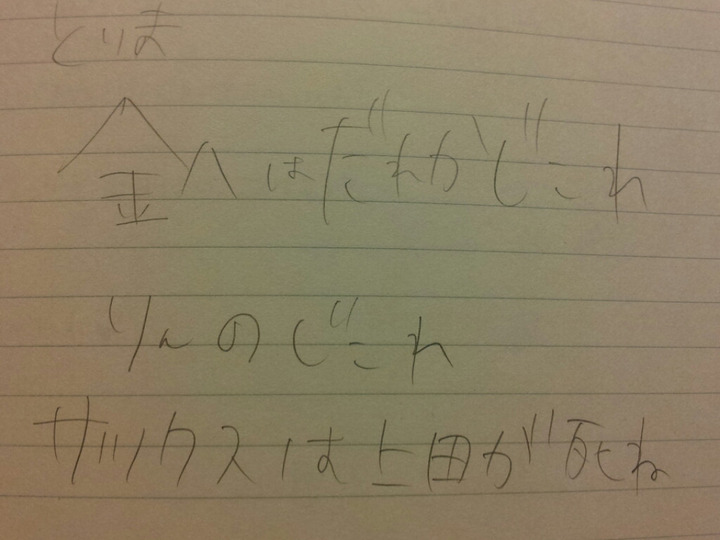 とりま
金八はだれかじこれ
りんのじこれ
サックスは上田が死ね